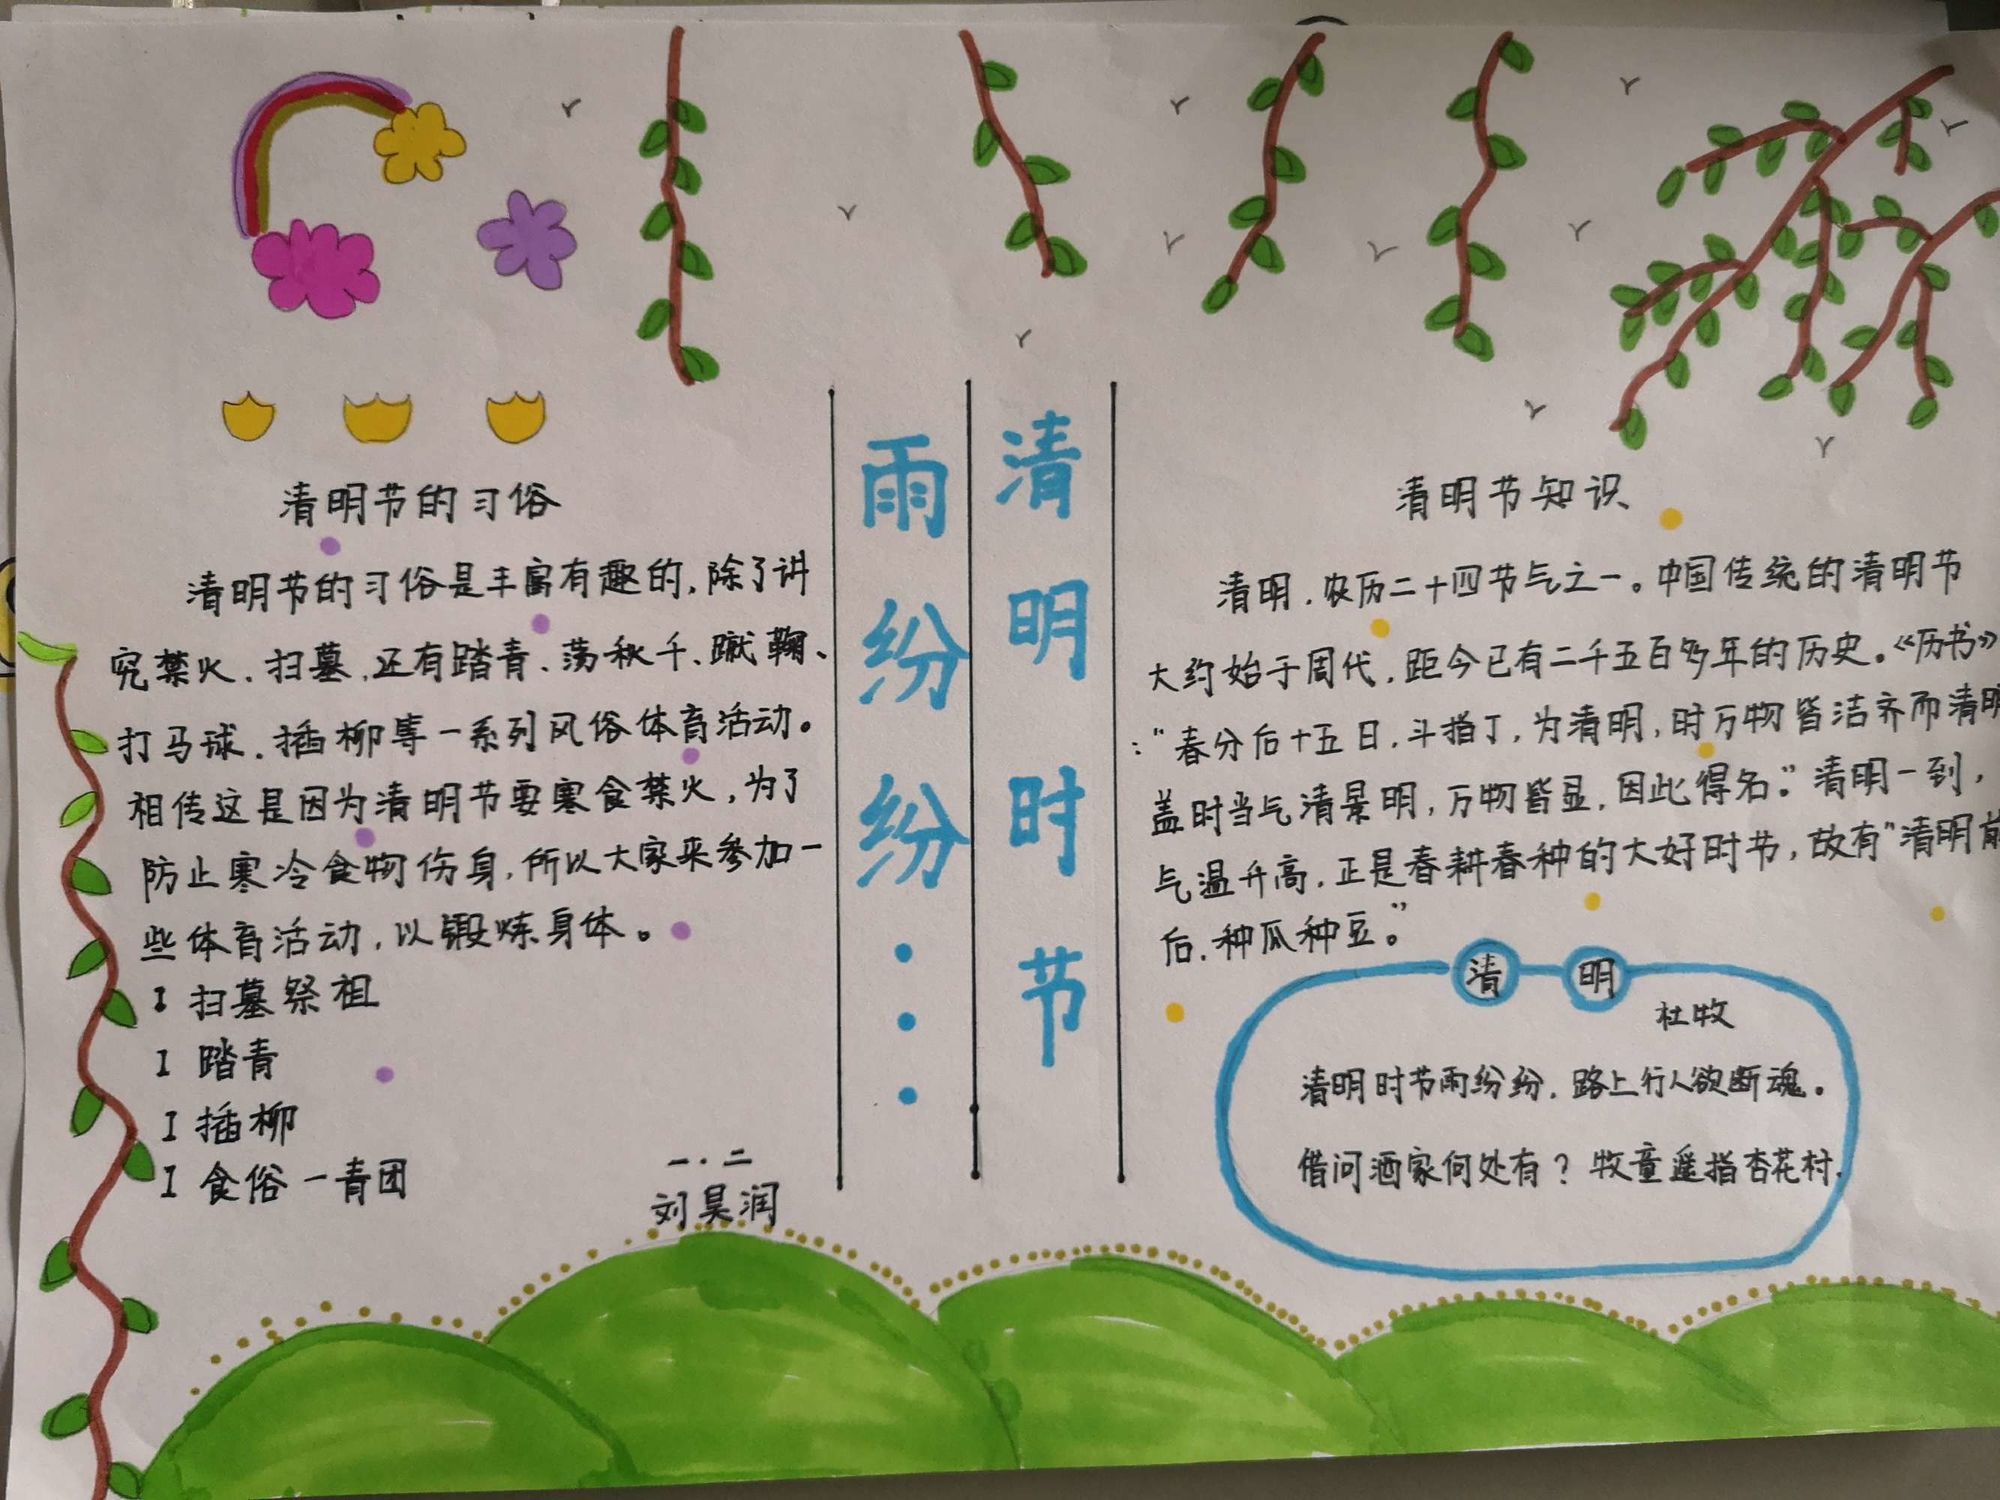 清明节的习俗
清明节的习俗是丰富有趣的,除了讲
究禁火、扫墓,还有踏青、荡秋千、蹴鞠、
打马球、插柳等一系列风俗体育活动。
相传这是因为清明节要寒食禁火,为了
防止寒冷食物伤身,所以大家来参加一
些体育活动,以锻炼身体。
I 扫墓祭祖
I 踏青
I 插柳
I 食俗一青团
一.二
刘昊润
清明时节
雨纷纷...
清明节知识
清明,农历二十四节气之一。中国传统的清明节
大约始于周代,距今已有二千五百多年的历史。《历书》
:“春分后十五日,斗指丁,为清明,时万物皆洁齐而清明
盖时当气清景明,万物皆显,因此得名。”清明一到,
气温升高,正是春耕春种的大好时节,故有“清明前
后,种瓜种豆。”
清明
杜牧
清明时节雨纷纷,路上行人欲断魂。
借问酒家何处有?牧童遥指杏花村.